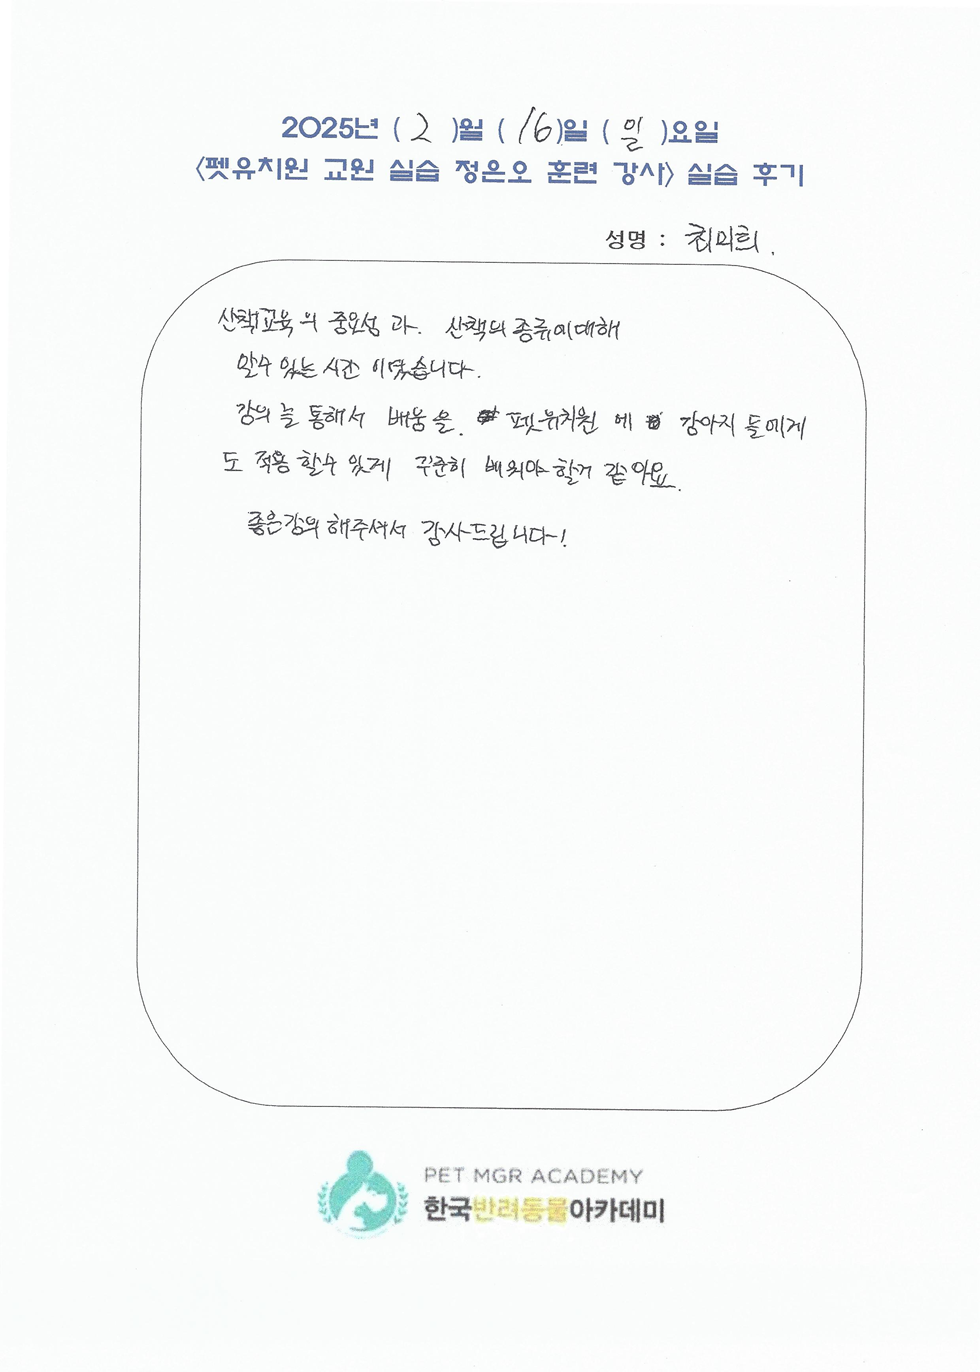 2025년 ( 2 )월 ( 16 )일 ( 일 )요일
<펫유치원 교원 실습 정은오 훈련 강사> 실습 후기
성명 : 최미희.
산책교육의 중요성 과. 산책의 종류에대해
알수 있는 시간 이였습니다.
강의를 통해서 배움을. 펫유치원 에 강아지 들에게
도 적용 할수 있게 꾸준히 배워야 할거 같아요.
좋은강의 해주셔서 감사드립니다!
PET MGR ACADEMY
한국반려동물아카데미